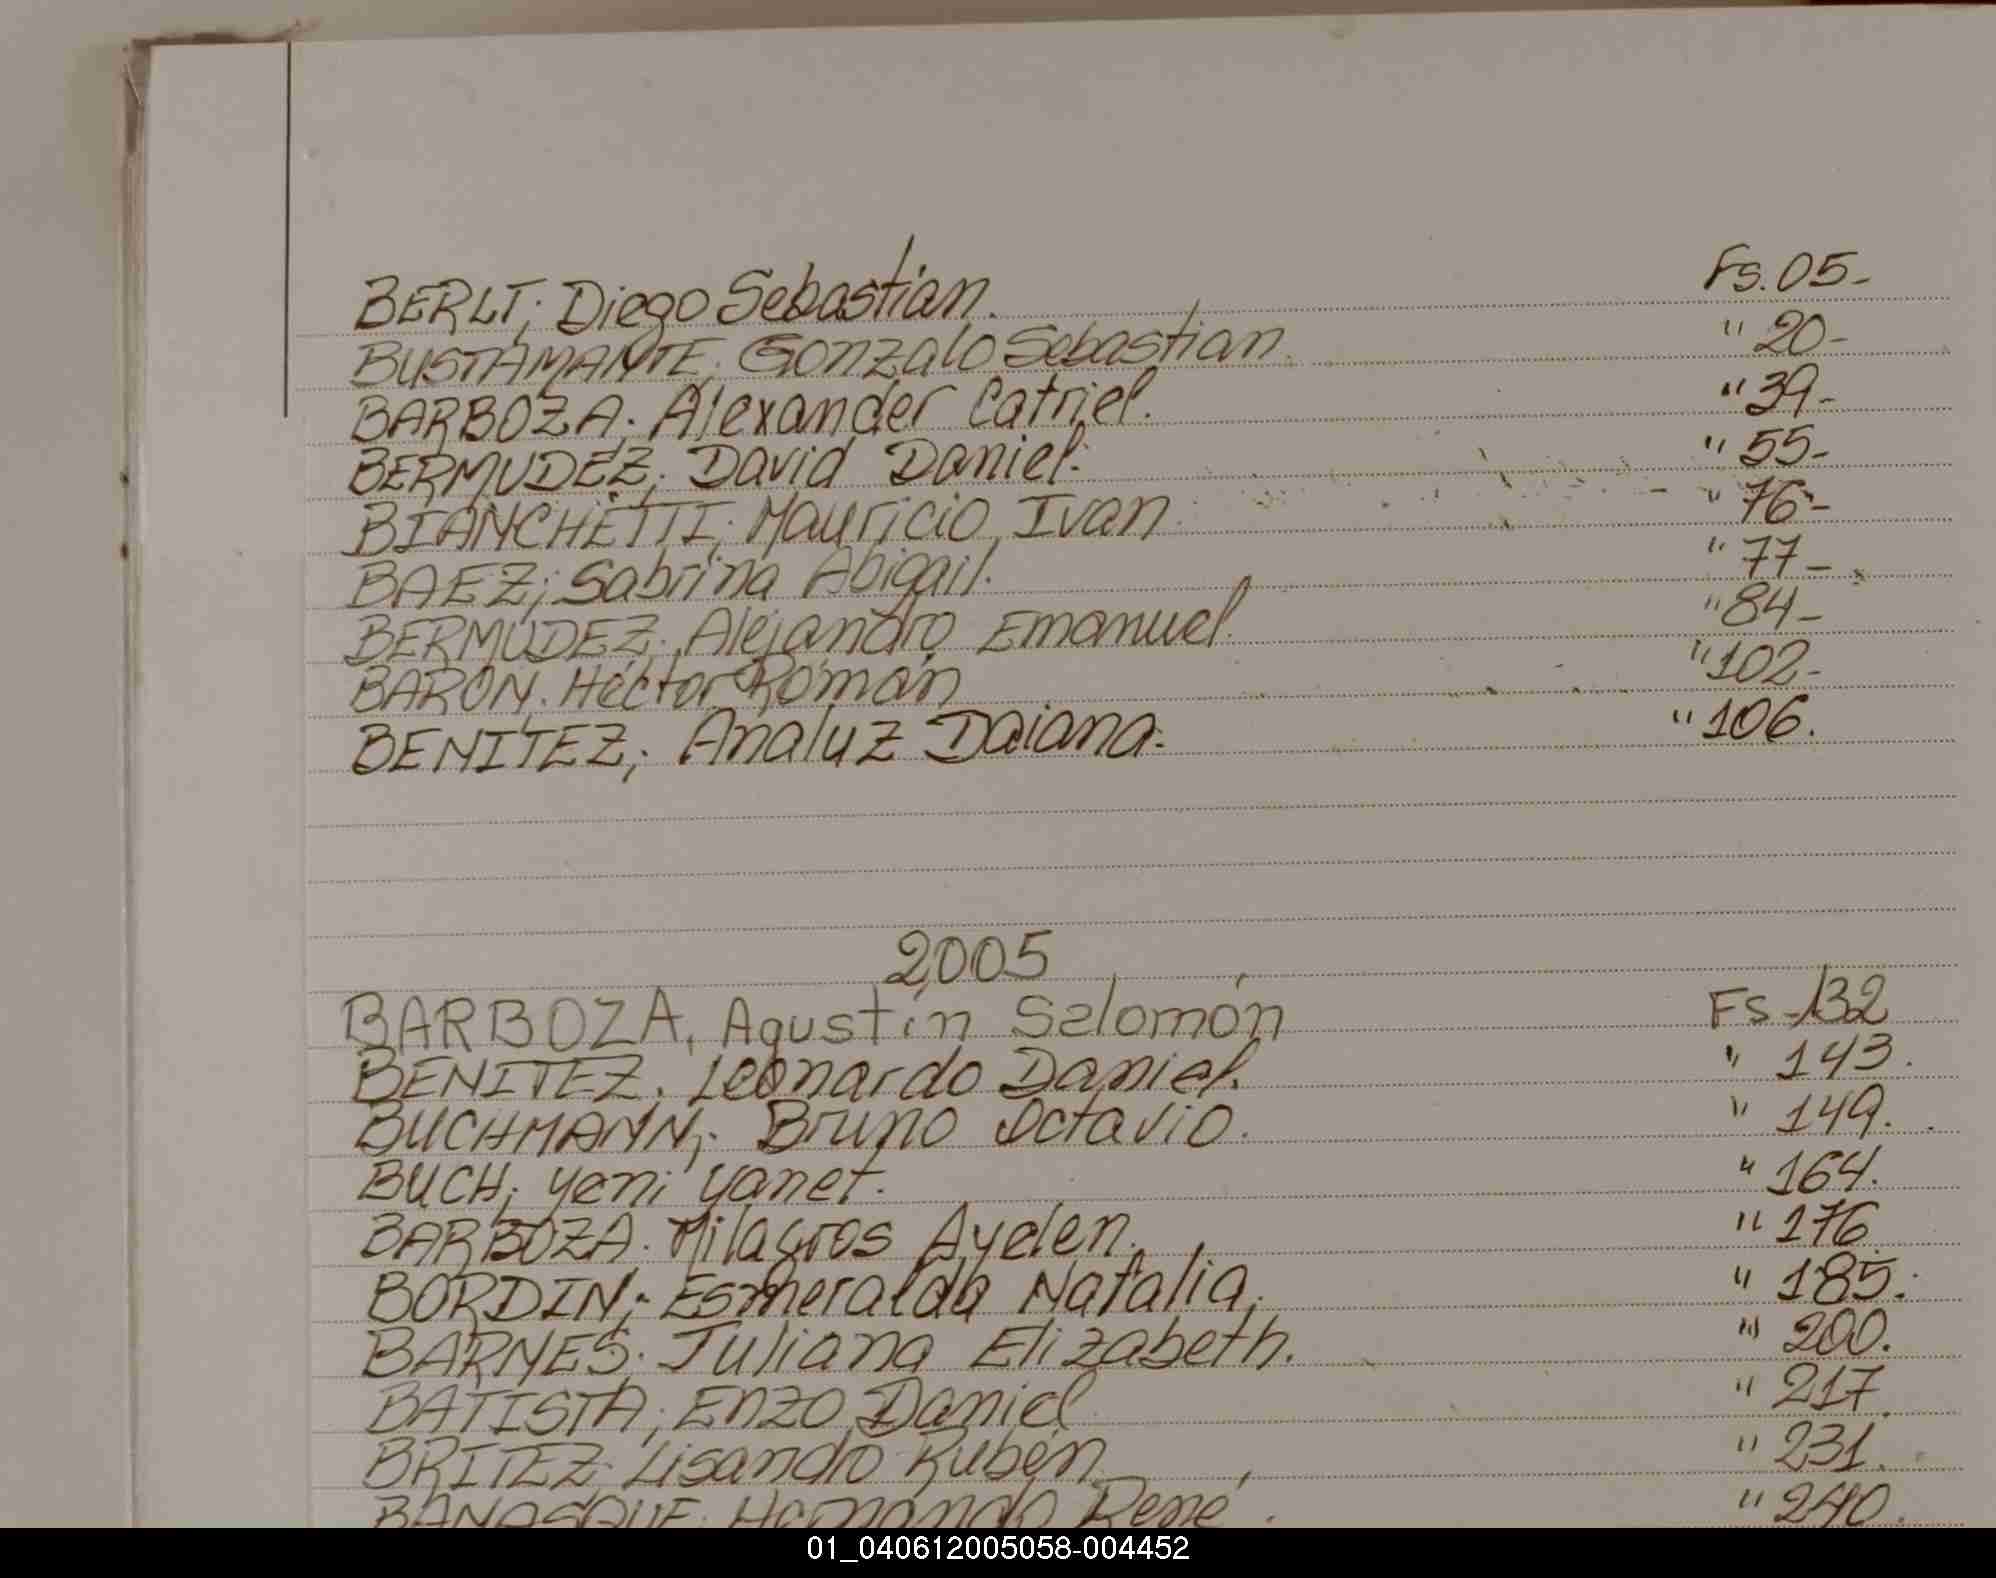 BERLT; Diego Sebastián. Fs. 05-
BUSTAMANTE; Gonzalo Sebastian. " 20-
BARBOZA; Alexander Catriel. " 39-
BERMUDEZ; David Daniel. " 55-
BIANCHETTI; Mauricio Ivan " 76-
BAEZ; Sabrina Abigail. " 77-
BERMUDEZ; Alejandro Emanuel. " 84-
BARON. Héctor Román " 102-
BENITEZ; Analuz Daiana. " 106.
2,005
BARBOZA, Agustín Salomón Fs-132
BENITEZ. Leonardo Daniel. " 143.
BUCHMANN; Bruno Octavio. " 149.
BUCH; Yeni Yanet. " 164.
BARBOZA. Milagros Ayelen. " 176
BORDIN; Esmeralda Natalia. " 185.
BARNES. Juliana Elizabeth. " 200.
BATISTA; Enzo Daniel " 217.
BRITEZ; Lisandro Rubén " 231.
René. " 240.
01_040612005058-004452